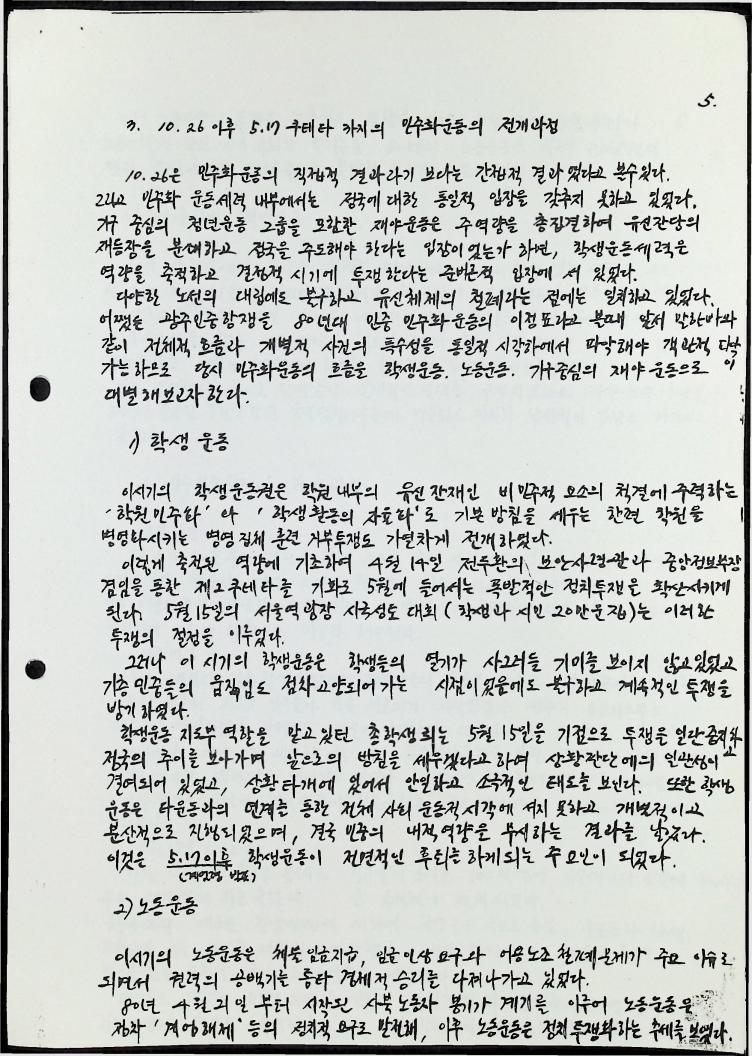 5.
3. 10.26 이후 5.17 쿠테타 까지의 민주화운동의 전개과정
10.26은 민주화운동의 직접적 결과라기 보다는 간접적 결과였다고 볼수있다.
그리고 민주화 운동세력 내부에서는 정국에 대한 통일적 입장을 갖추지 못하고 있었다.
가구 중심의 청년운동 그룹을 포함한 재야운동은 주역량을 총집결하여 유신잔당의
재등장을 분쇄하고 정국을 주도해야 한다는 입장이 있는가 하면, 학생운동세력은
역량을 축적하고 결정적 시기에 투쟁한다는 준비론적 입장에 서 있었다.
다양한 노선의 대립에도 불구하고 유신체제의 철폐라는 점에는 일치하고 있었다.
어쨌든 광주민중항쟁을 80년대 민중 민주화운동의 이정표라고 볼때 앞서 말한바와
같이 전체적 흐름과 개별적 사건의 특수성을 통일적 시각하에서 파악해야 객관적 파악이
가능하므로 당시 민주화운동의 흐름을 학생운동. 노동운동. 가구중심의 재야운동으로
대별해보고자한다.
1) 학생 운동
이시기의 학생운동권은 학원내부의 유신잔재인 비민주적 요소의 척결에 주력하는
'학원민주화' 와 '학생활동의 자율화'로 기본 방침을 세우는 한편 학원을
병영화시키는 병영 집체 훈련 거부투쟁도 가열차게 전개하였다.
이렇게 축적된 역량에 기초하여 4월 14일 전두환의 보안사령관과 중앙정보부장
겸임을 통한 제2쿠테타를 기화로 5월에 들어서는 폭발적인 정치투쟁을 확산시키게
된다. 5월15일의 서울역광장 시국성토 대회(학생과 시민 20만운집)는 이러한
투쟁의 절정을 이루었다.
그러나 이 시기의 학생운동은 학생들의 열기가 사그러들 기미를 보이지 않고있었고
기층민중들의 움직임도 점차고양되어 가는 시점이었음에도 불구하고 계속적인 투쟁을
방기하였다.
학생운동 지도부 역할을 맡고있던 총학생회는 5월 15일을 기점으로 투쟁을 일단중지하고
정국의 추이를 보아가며 앞으로의 방침을 세우겠다고 하여 상황판단에의 일관성이
결여되어 있었고, 상황타개에 있어서 안일하고 소극적인 태도를 보인다. 또한 학생
운동은 타운동과의 연계를 통한 전체 사회 운동적시각에 서지 못하고 개별적이고
분산적으로 진행되었으며, 결국 민중의 내적역량을 무시하는 결과를 낳았다.
이것은 5.17이후 학생운동이 전면적인 후퇴를하게되는 주요인이 되었다.
(계엄령 발표)
2) 노동운동
이시기의 노동운동은 체불임금지급, 임금인상요구와 어용노조철폐문제가 주요 이슈로
되면서 권력의 공백기를 통타 경제적 승리를 다져나가고 있었다.
80년 4월 21일 부터 시작된 사북노동자 봉기가 계기를 이루어 노동운동은
점차 '계엄해제' 등의 정치적요구로 발전해, 이후 노동운동은 정치투쟁화하는 추세를 보였다.